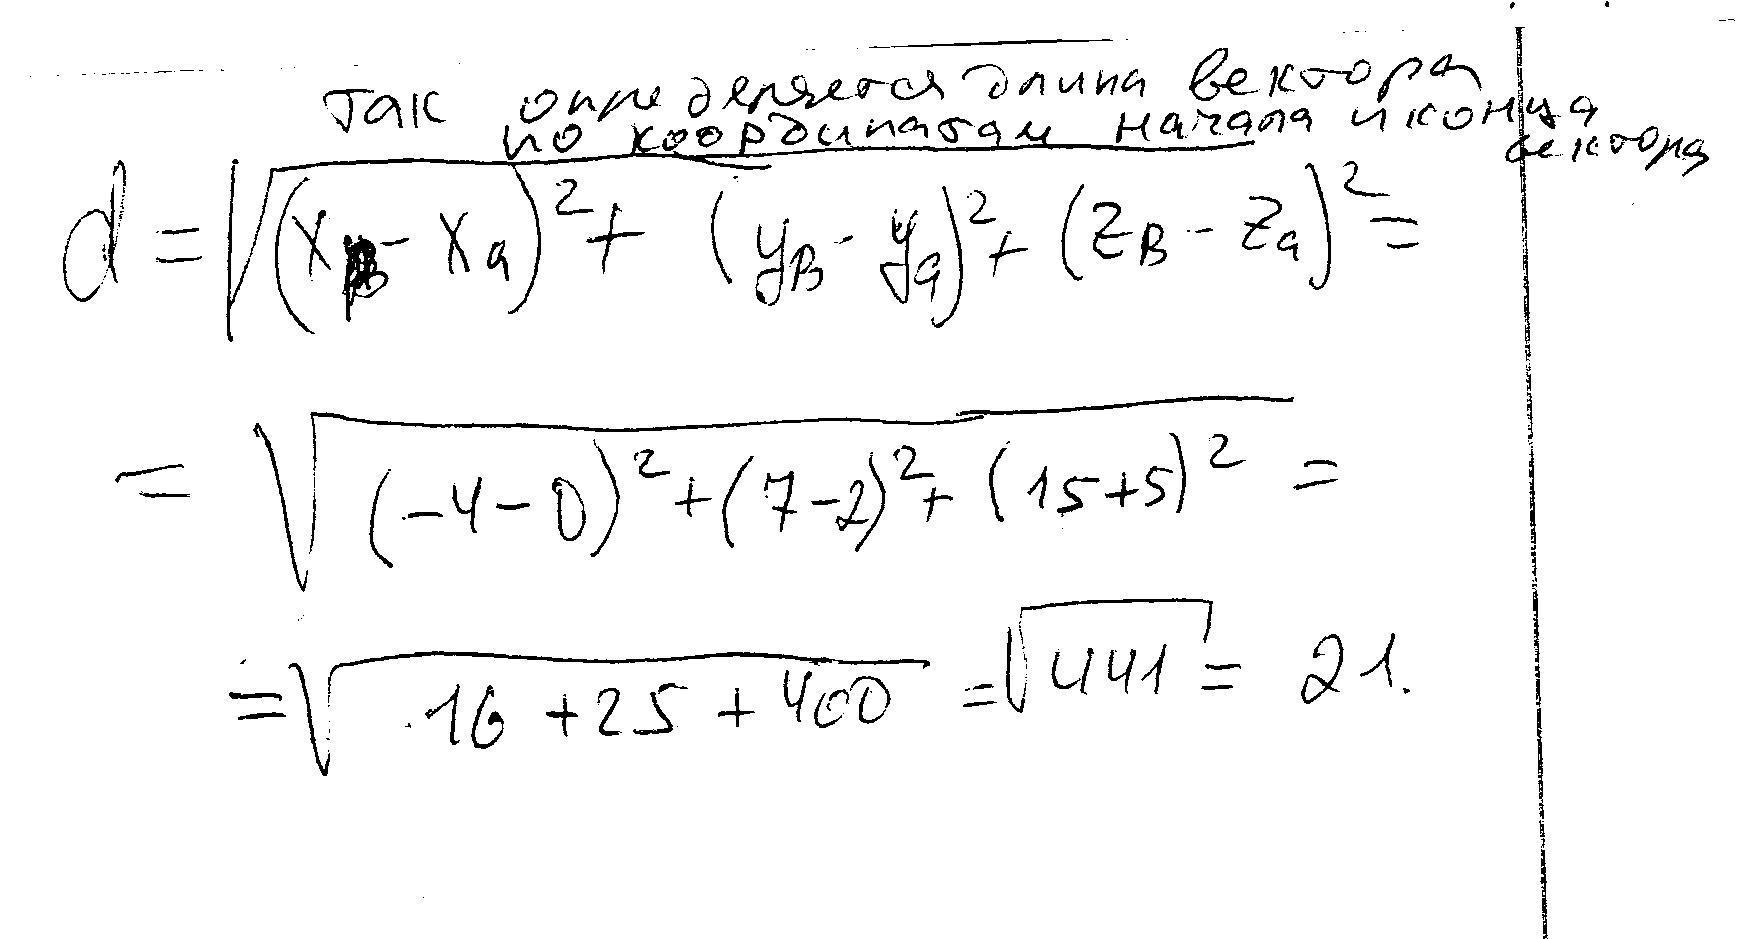 так определяется длина вектора
по координатам начала и конца
вектора
d = √((x_B - x_a)² + (y_B - y_a)² + (z_B - z_a)²) =
= √((-4-0)² + (7-2)² + (15+5)²) =
= √(16 + 25 + 400) = √441 = 21.